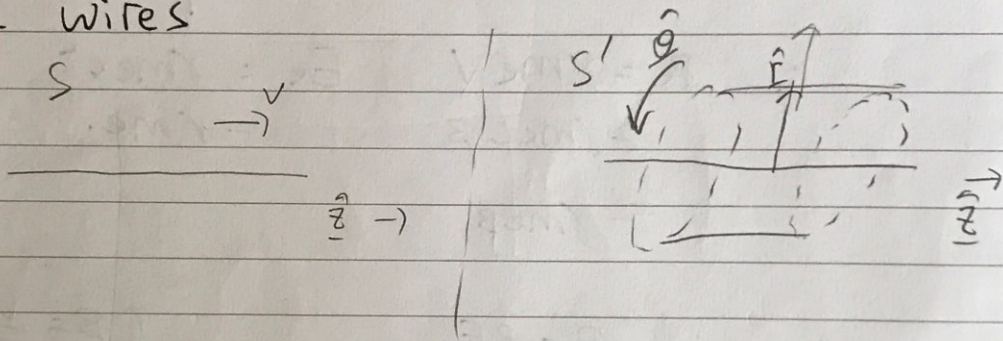 wires
S
v
→
ẑ →
S'
θ̂
r̂
→
ẑ